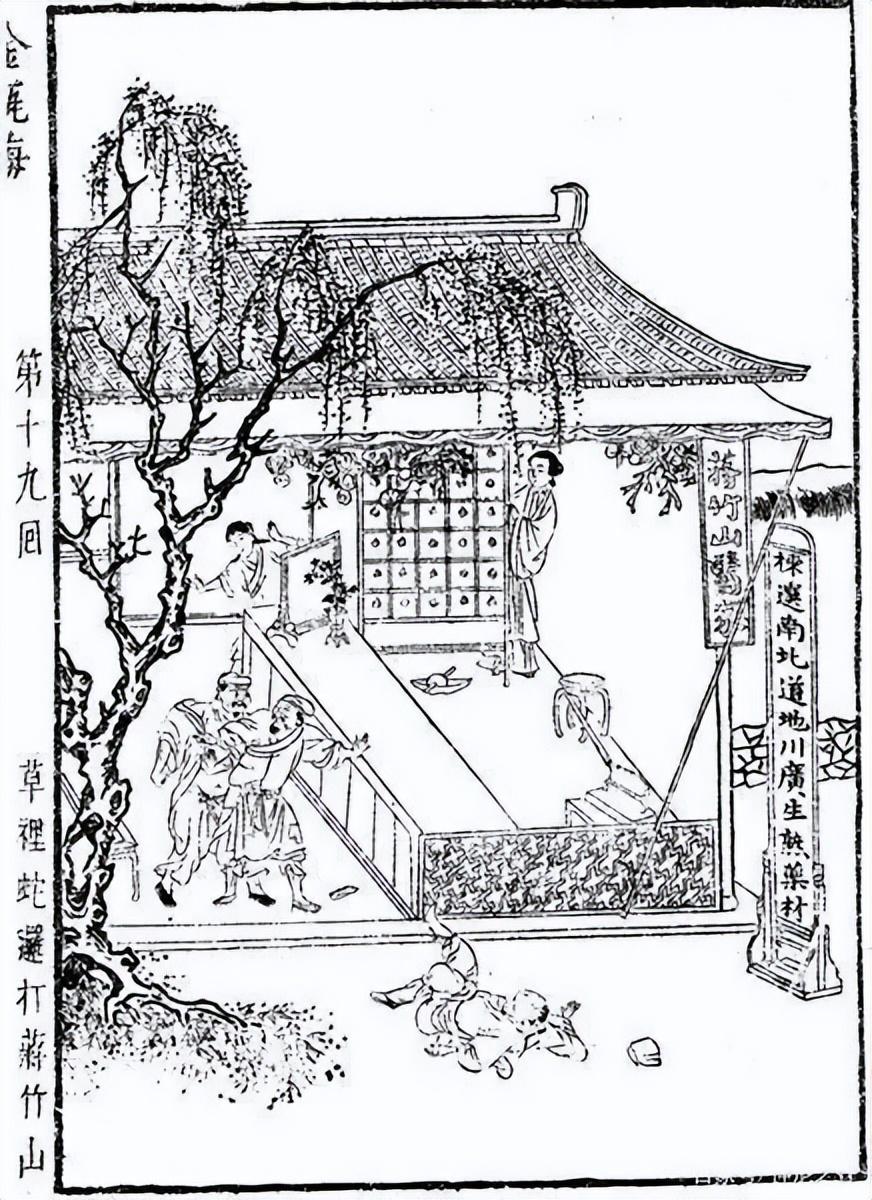 金瓶梅
第十九回
草裡蛇邏打蔣竹山
揀選南北道地川廣生熟藥材
蔣竹山醫